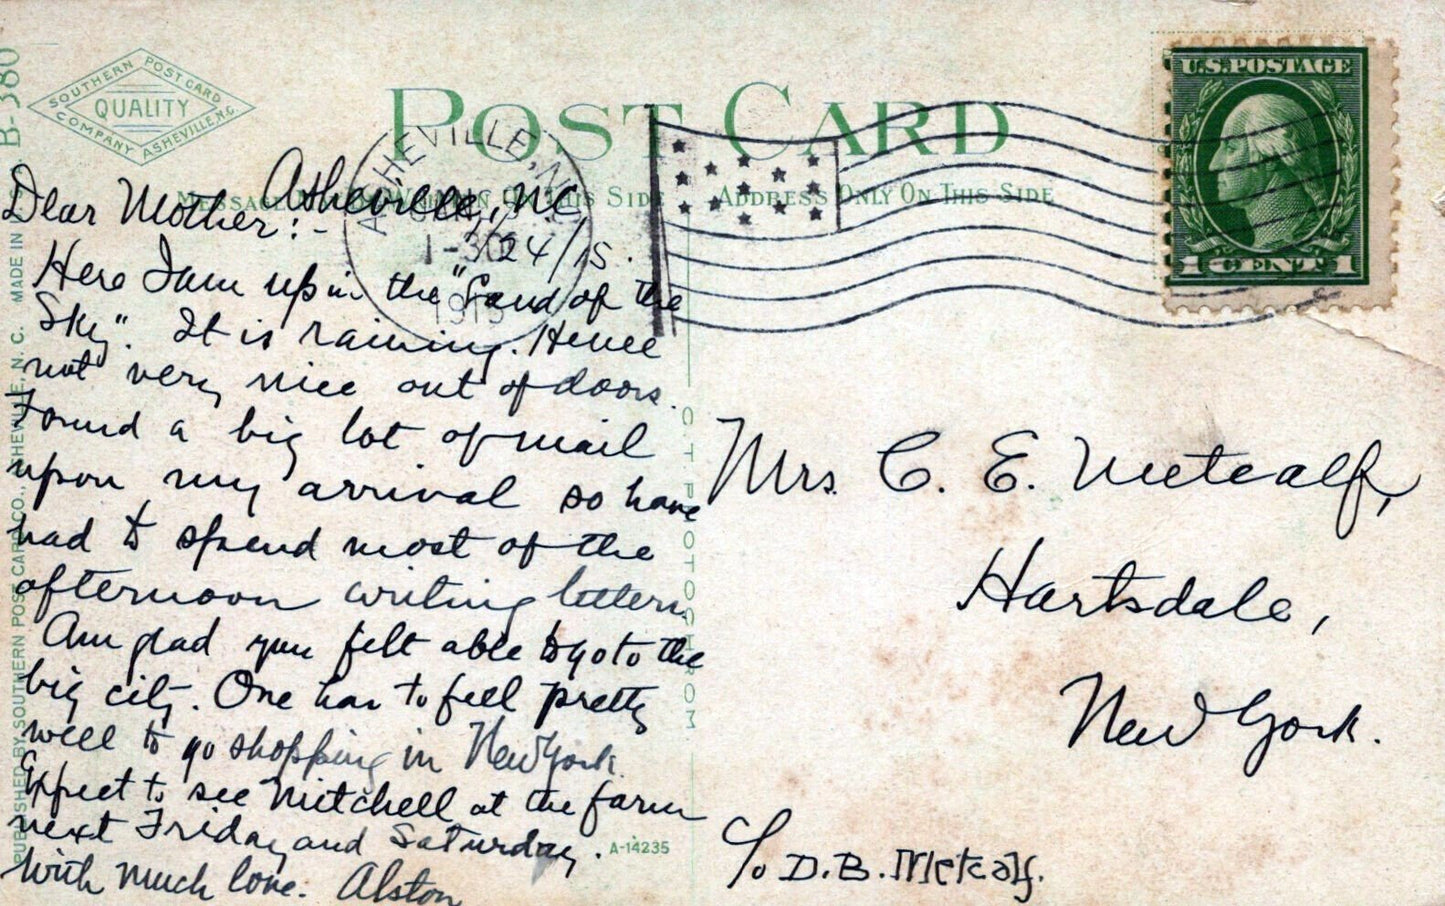 B-380
SOUTHERN POST CARD
QUALITY
COMPANY ASHEVILLE, N.C.
POST CARD
U.S. POSTAGE
1 CENT 1
ASHEVILLE, N.
1-30
1915
ADDRESS ONLY ON THIS SIDE
Asheville, NC,
1/24/15.
Dear Mother:-
Here I am up in the "Land of the
Sky". It is raining. Hence
not very nice out of doors.
Found a big lot of mail
upon my arrival so have
had to spend most of the
afternoon writing letters.
Am glad you felt able to go to the
big city. One has to feel pretty
well to go shopping in New York.
Expect to see Mitchell at the farm
next Friday and Saturday.
With much love. Alston
Mrs. C. E. Metcalf,
Hartsdale,
New York.
c/o D.B. Metcalf.
A-14235
C. T. PHOTOCHROM
PUBLISHED BY SOUTHERN POST CARD CO., ASHEVILLE, N. C. MADE IN